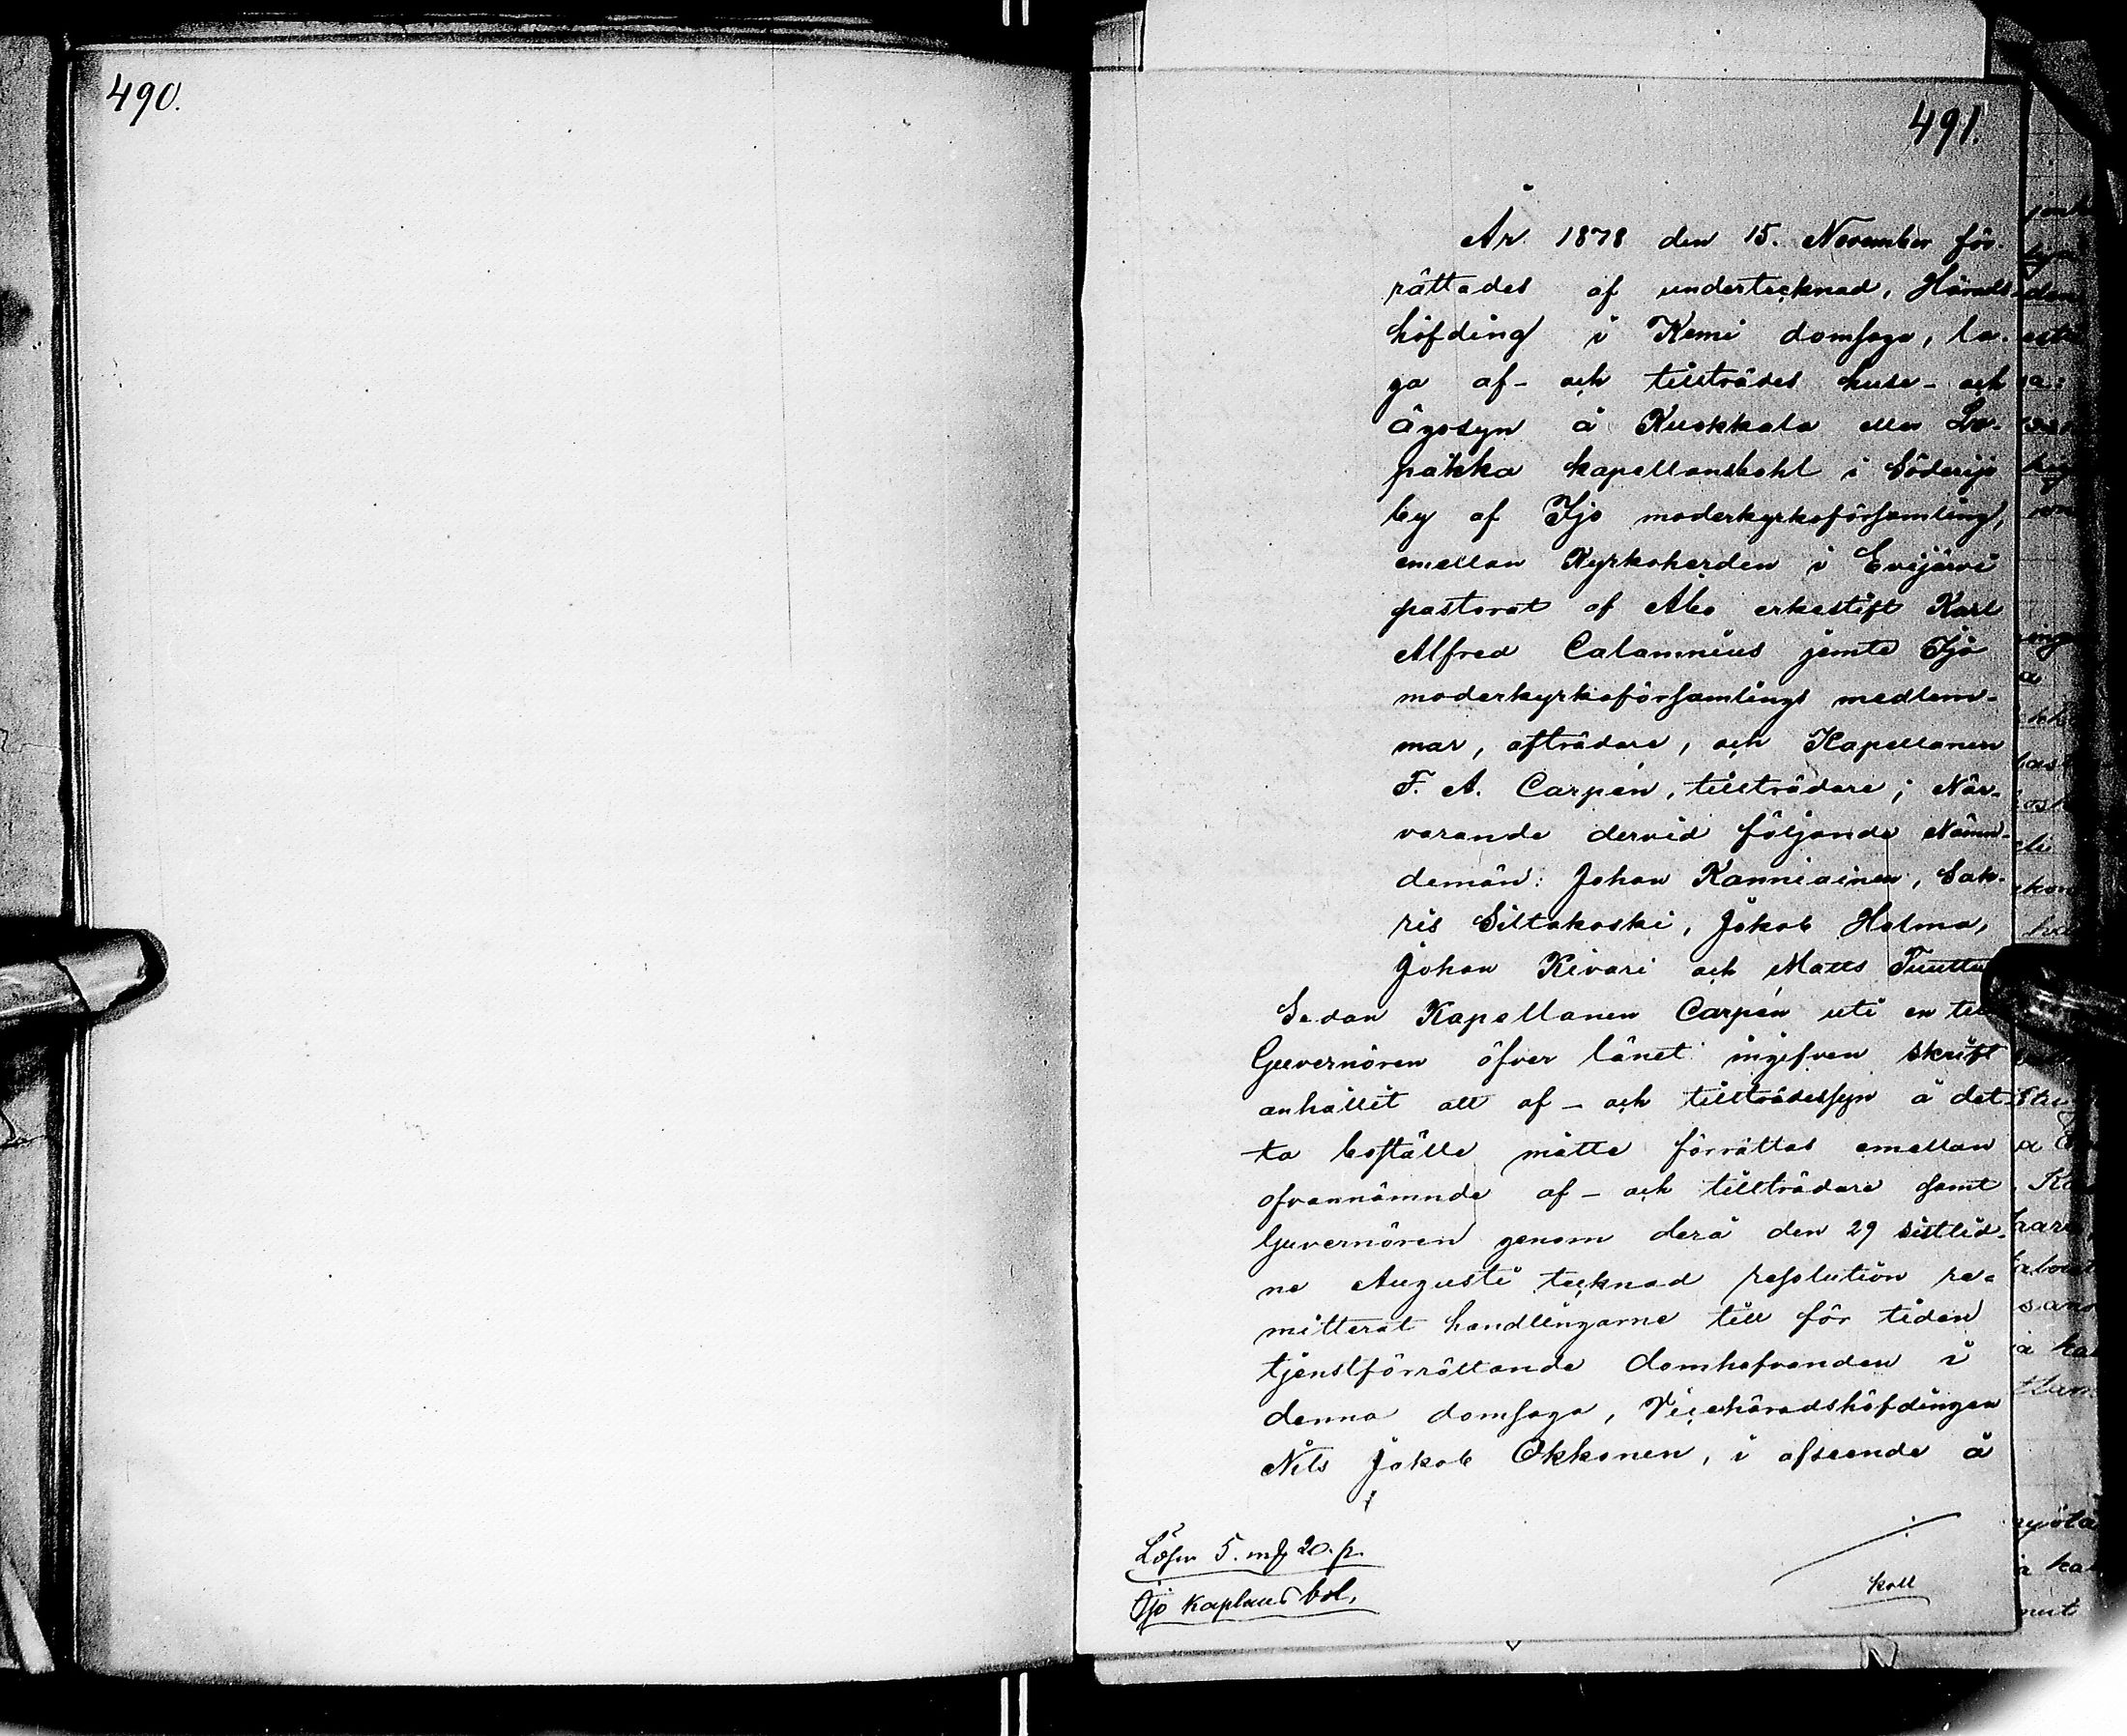 490.
491.
År 1878 den 15. November för-
rättades af undertecknad, Härads-
höfding i Kemi domsaga, la-
ga af- och tillträdes huse- och
ägosyn å Kuokkala eller
päkka kapellansbohl i Söderijo
by af Ijo moderkyrkoförsamling,
emellan Kyrkoherden i Evijärvi
pastorat af Åbo erkestift Karl
Alfred Calamnius jemte Ijo
moderkyrkoförsamlings medlem-
mar, afträdare, och Kapellanen
F. A. Carpén, tillträdare; När-
varande dervid följande Nämn-
demän: Johan Kanniainen, Sak-
ris Siltakoski, Jakob Holma,
Johan Kivari och Matts Tuuttu
Sedan Kapellanen Carpén uti en till
Guvernören öfver länet ingifven skrift
anhållit att af- och tillträdessyn å det-
ta boställe måtte förrättas emellan
ofvannämnde af- och tillträdare samt
Guvernören genom derå den 29 sistlid-
ne Augusti tecknad resolution re-
mitterat handlingarne till för tiden
tjenstförrättande domhafvanden i
denna domsaga, Vicehäradshöfdingen
Nils Jakob Okkonen, i afseende å
Lösen 5. mk 20. p.
Ijo Kaplans bol.
koll